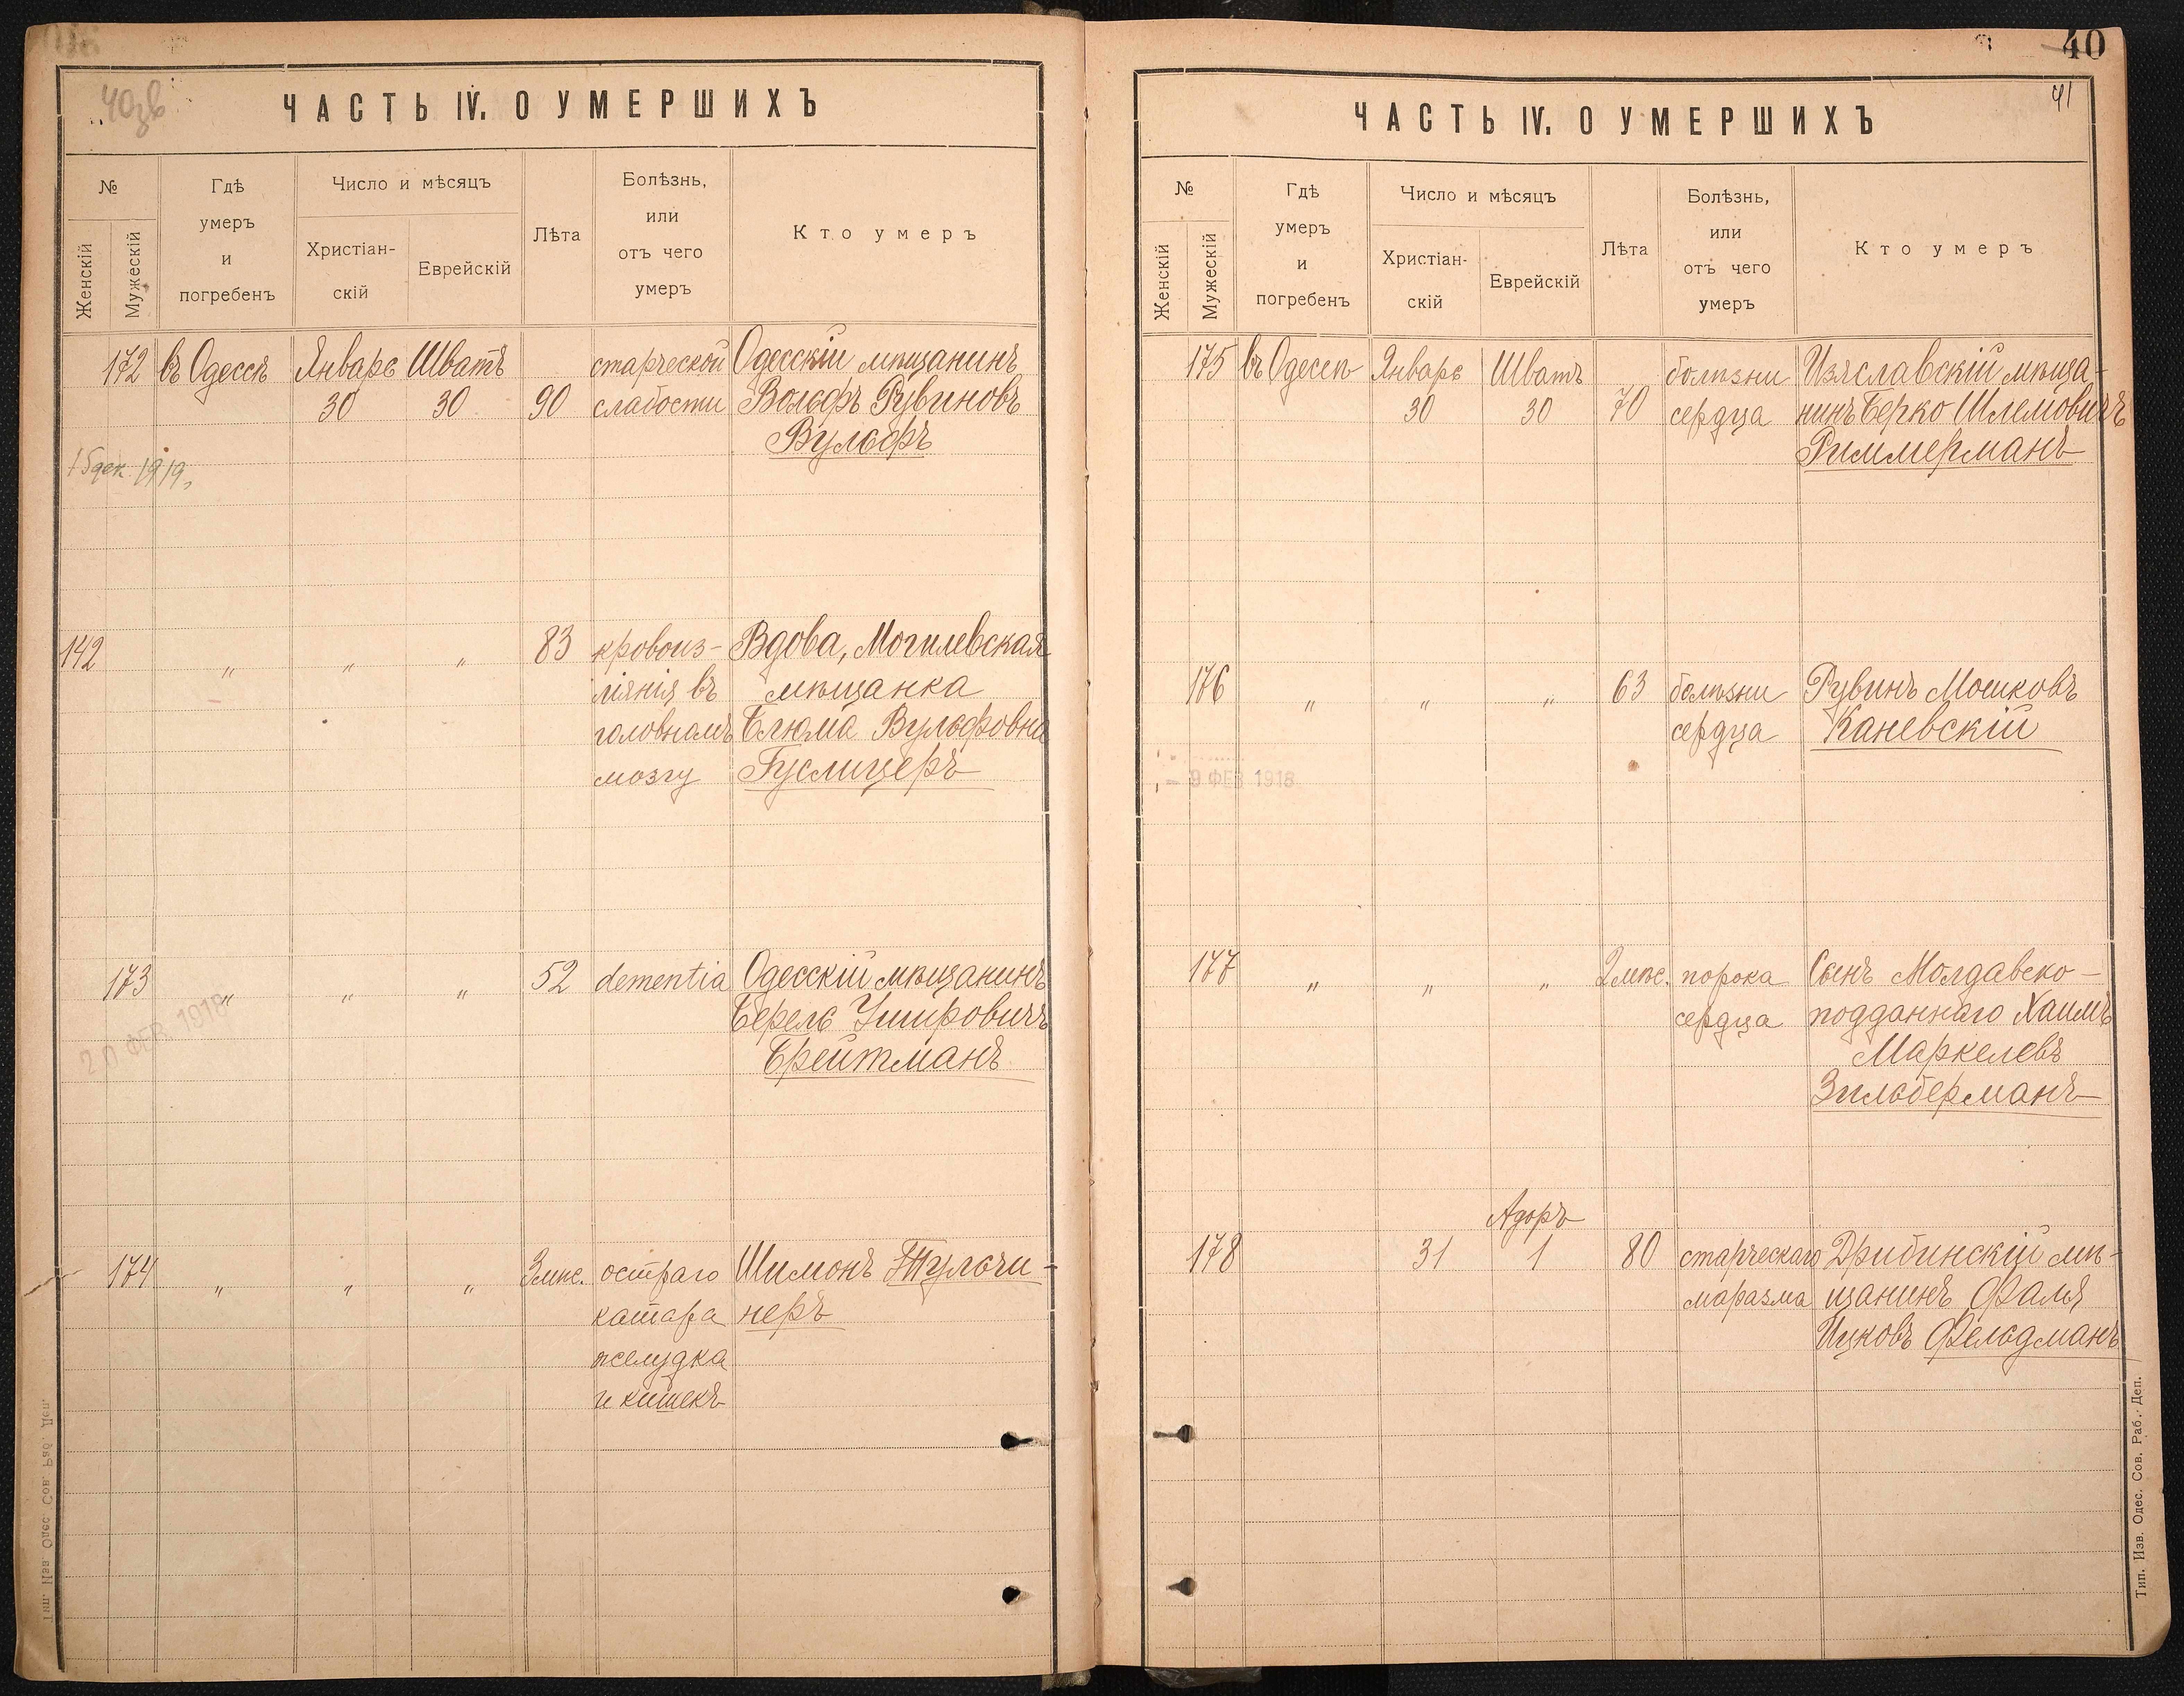 40
40зв
41
ЧАСТЬ IV. О УМЕРШИХЪ
№
Женскій
Мужескій
Гдѣ
умеръ
и
погребенъ
Число и мѣсяцъ
Христіан-
скій
Еврейскій
Лѣта
Болѣзнь,
или
отъ чего
умеръ
Кто умеръ
172 въ Одессѣ Январь Шватъ старческой Одесскій мѣщанинъ
30 30 90 слабости Вольфъ Рувиновъ
Вульфъ
15 дек. 1919,
142 „ „ „ 83 кровоиз- Вдова, Могилевская
ліянія въ мѣщанка
головномъ Блюма Вульфовна
мозгу Гуслицеръ
173 „ „ „ 52 dementia Одесскій мѣщанинъ
20 ФЕВ. 1918
Берель Умировичъ
Брейтманъ
174 „ „ „ 3 мѣс. остраго Шимонъ Тульчи-
катара неръ
желудка
и кишекъ
Тип. Изв. Одес. Сов. Раб. Деп.
ЧАСТЬ IV. О УМЕРШИХЪ
№
Женскій
Мужескій
Гдѣ
умеръ
и
погребенъ
Число и мѣсяцъ
Христіан-
скій
Еврейскій
Лѣта
Болѣзнь,
или
отъ чего
умеръ
Кто умеръ
175 въ Одессѣ Январь Шватъ болѣзни Изяславскій мѣща-
30 30 70 сердца нинъ Берко Шлемовичъ
Риммерманъ
176 „ „ „ 63 болѣзни Рувинъ Мошковъ
сердца Каневскій
- 9 ФЕВ 1918
177 „ „ „ 2 мѣс. порока Сынъ Молдавско-
сердца подданнаго Хаимъ
Маркелевъ
Зильберманъ
Адоръ
178 31 1 80 старческаго Дрибинскій мѣ-
маразма щанинъ Фаля
Ицковъ Фельдманъ
Тип. Изв. Одес. Сов. Раб. Деп.